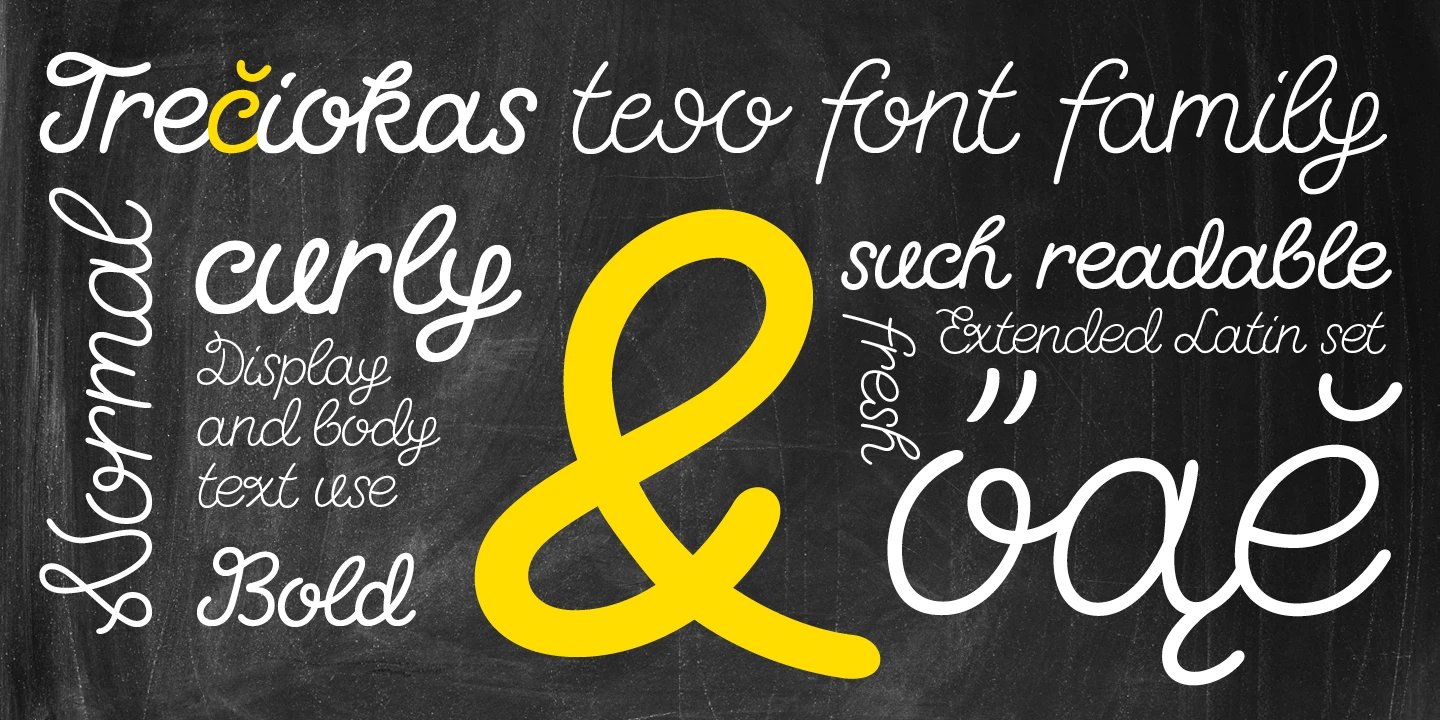 Trečiokas two font family
Normal
curly
Display
and body
text use
Bold
&
such readable
Extended Latin set
fresh
őąĕ